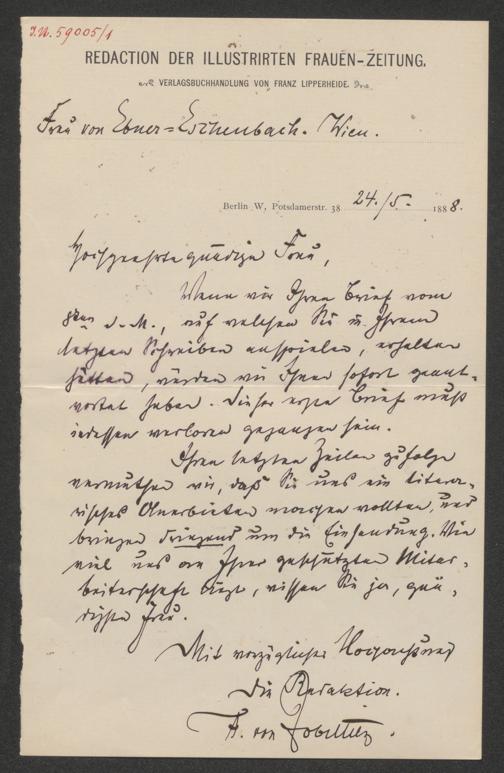 J.N. 59005/1
REDACTION DER ILLUSTRIRTEN FRAUEN-ZEITUNG.
VERLAGSBUCHHANDLUNG VON FRANZ LIPPERHEIDE.
Frau von Ebner=Eschenbach. Wien.
Berlin W, Potsdamerstr. 38 24./5. 1888.
Hochgeehrte gnädige Frau,
Wenn wir Ihren Brief vom
8ten d. M., auf welchen Sie in Ihrem
letzten Schreiben anspielen, erhalten
hätten, würden wir Ihnen sofort geant-
wortet haben. Dieser erste Brief muß
indessen verloren gegangen sein.
Ihren letzten Zeilen zufolge
vermuthen wir, daß Sie uns ein litera-
risches Anerbieten machen wollten, und
bringen dringend um die Einsendung. Wie
viel uns an Ihrer geschätzten Mitar-
beiterschaft liegt, wissen Sie ja, gnä-
digste Frau.
Mit vorzüglicher Hochachtung
Die Redaktion.
F. von Zobeltitz.